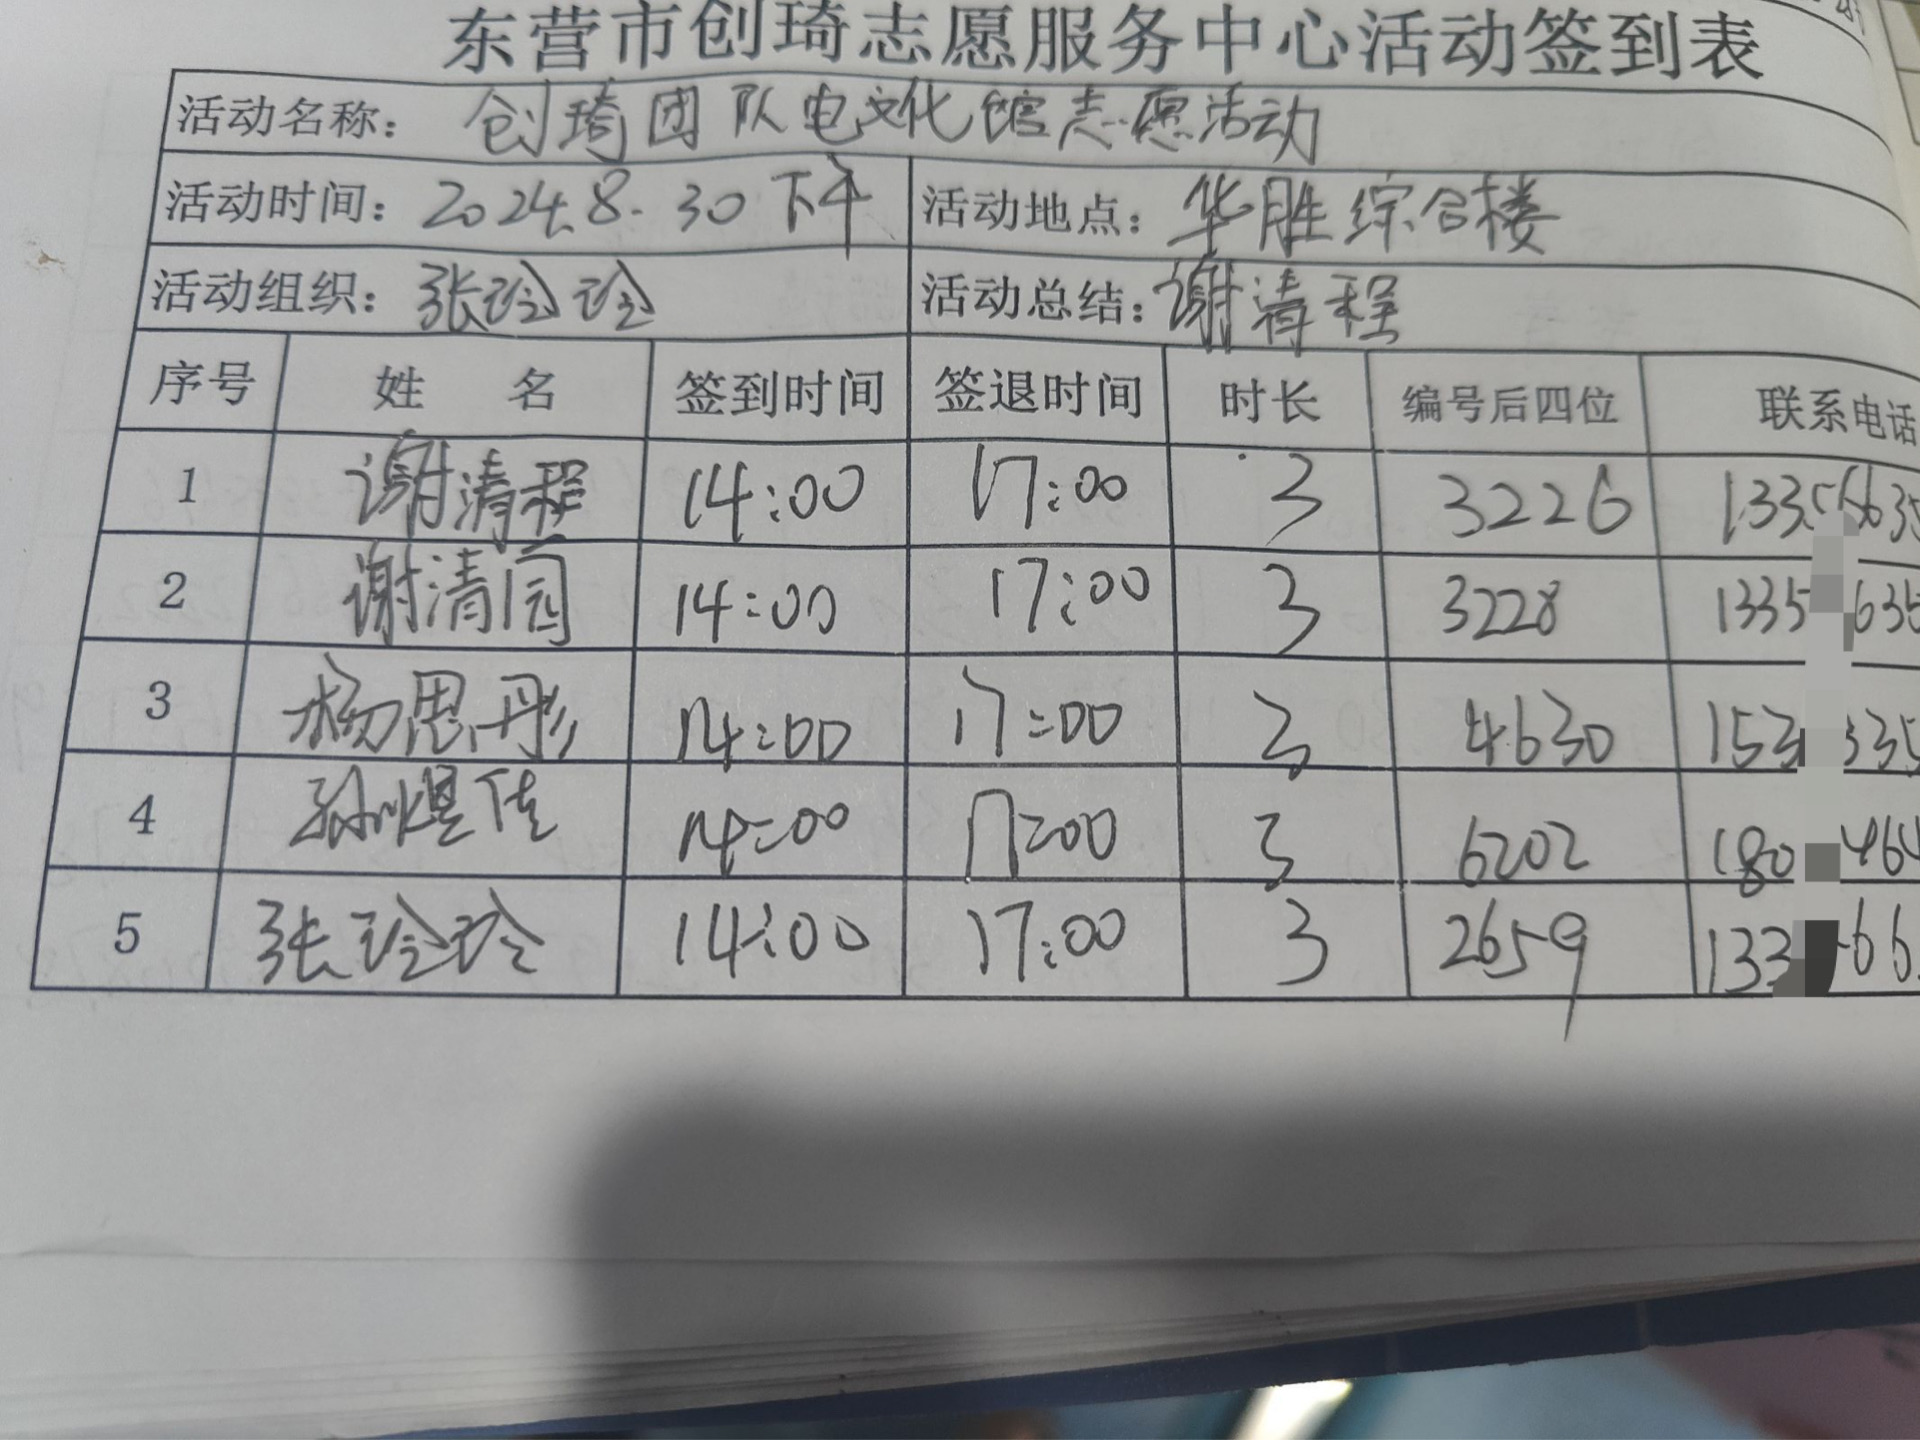 东营市创琦志愿服务中心活动签到表
活动名称：创琦团队电文化馆志愿活动
活动时间：2024.8.30下午 活动地点：华胜综合楼
活动组织：张玲玲 活动总结：谢清程
序号 姓名 签到时间 签退时间 时长 编号后四位 联系电话
1 谢清程 14:00 17:00 3 3226
2 谢清园 14:00 17:00 3 3228 1335 635
3 杨思彤 14:00 17:00 3 4630 153 335
4 孙煜佳 14:00 17:00 3 6202 180 464
5 张玲玲 14:00 17:00 3 2659 133 66